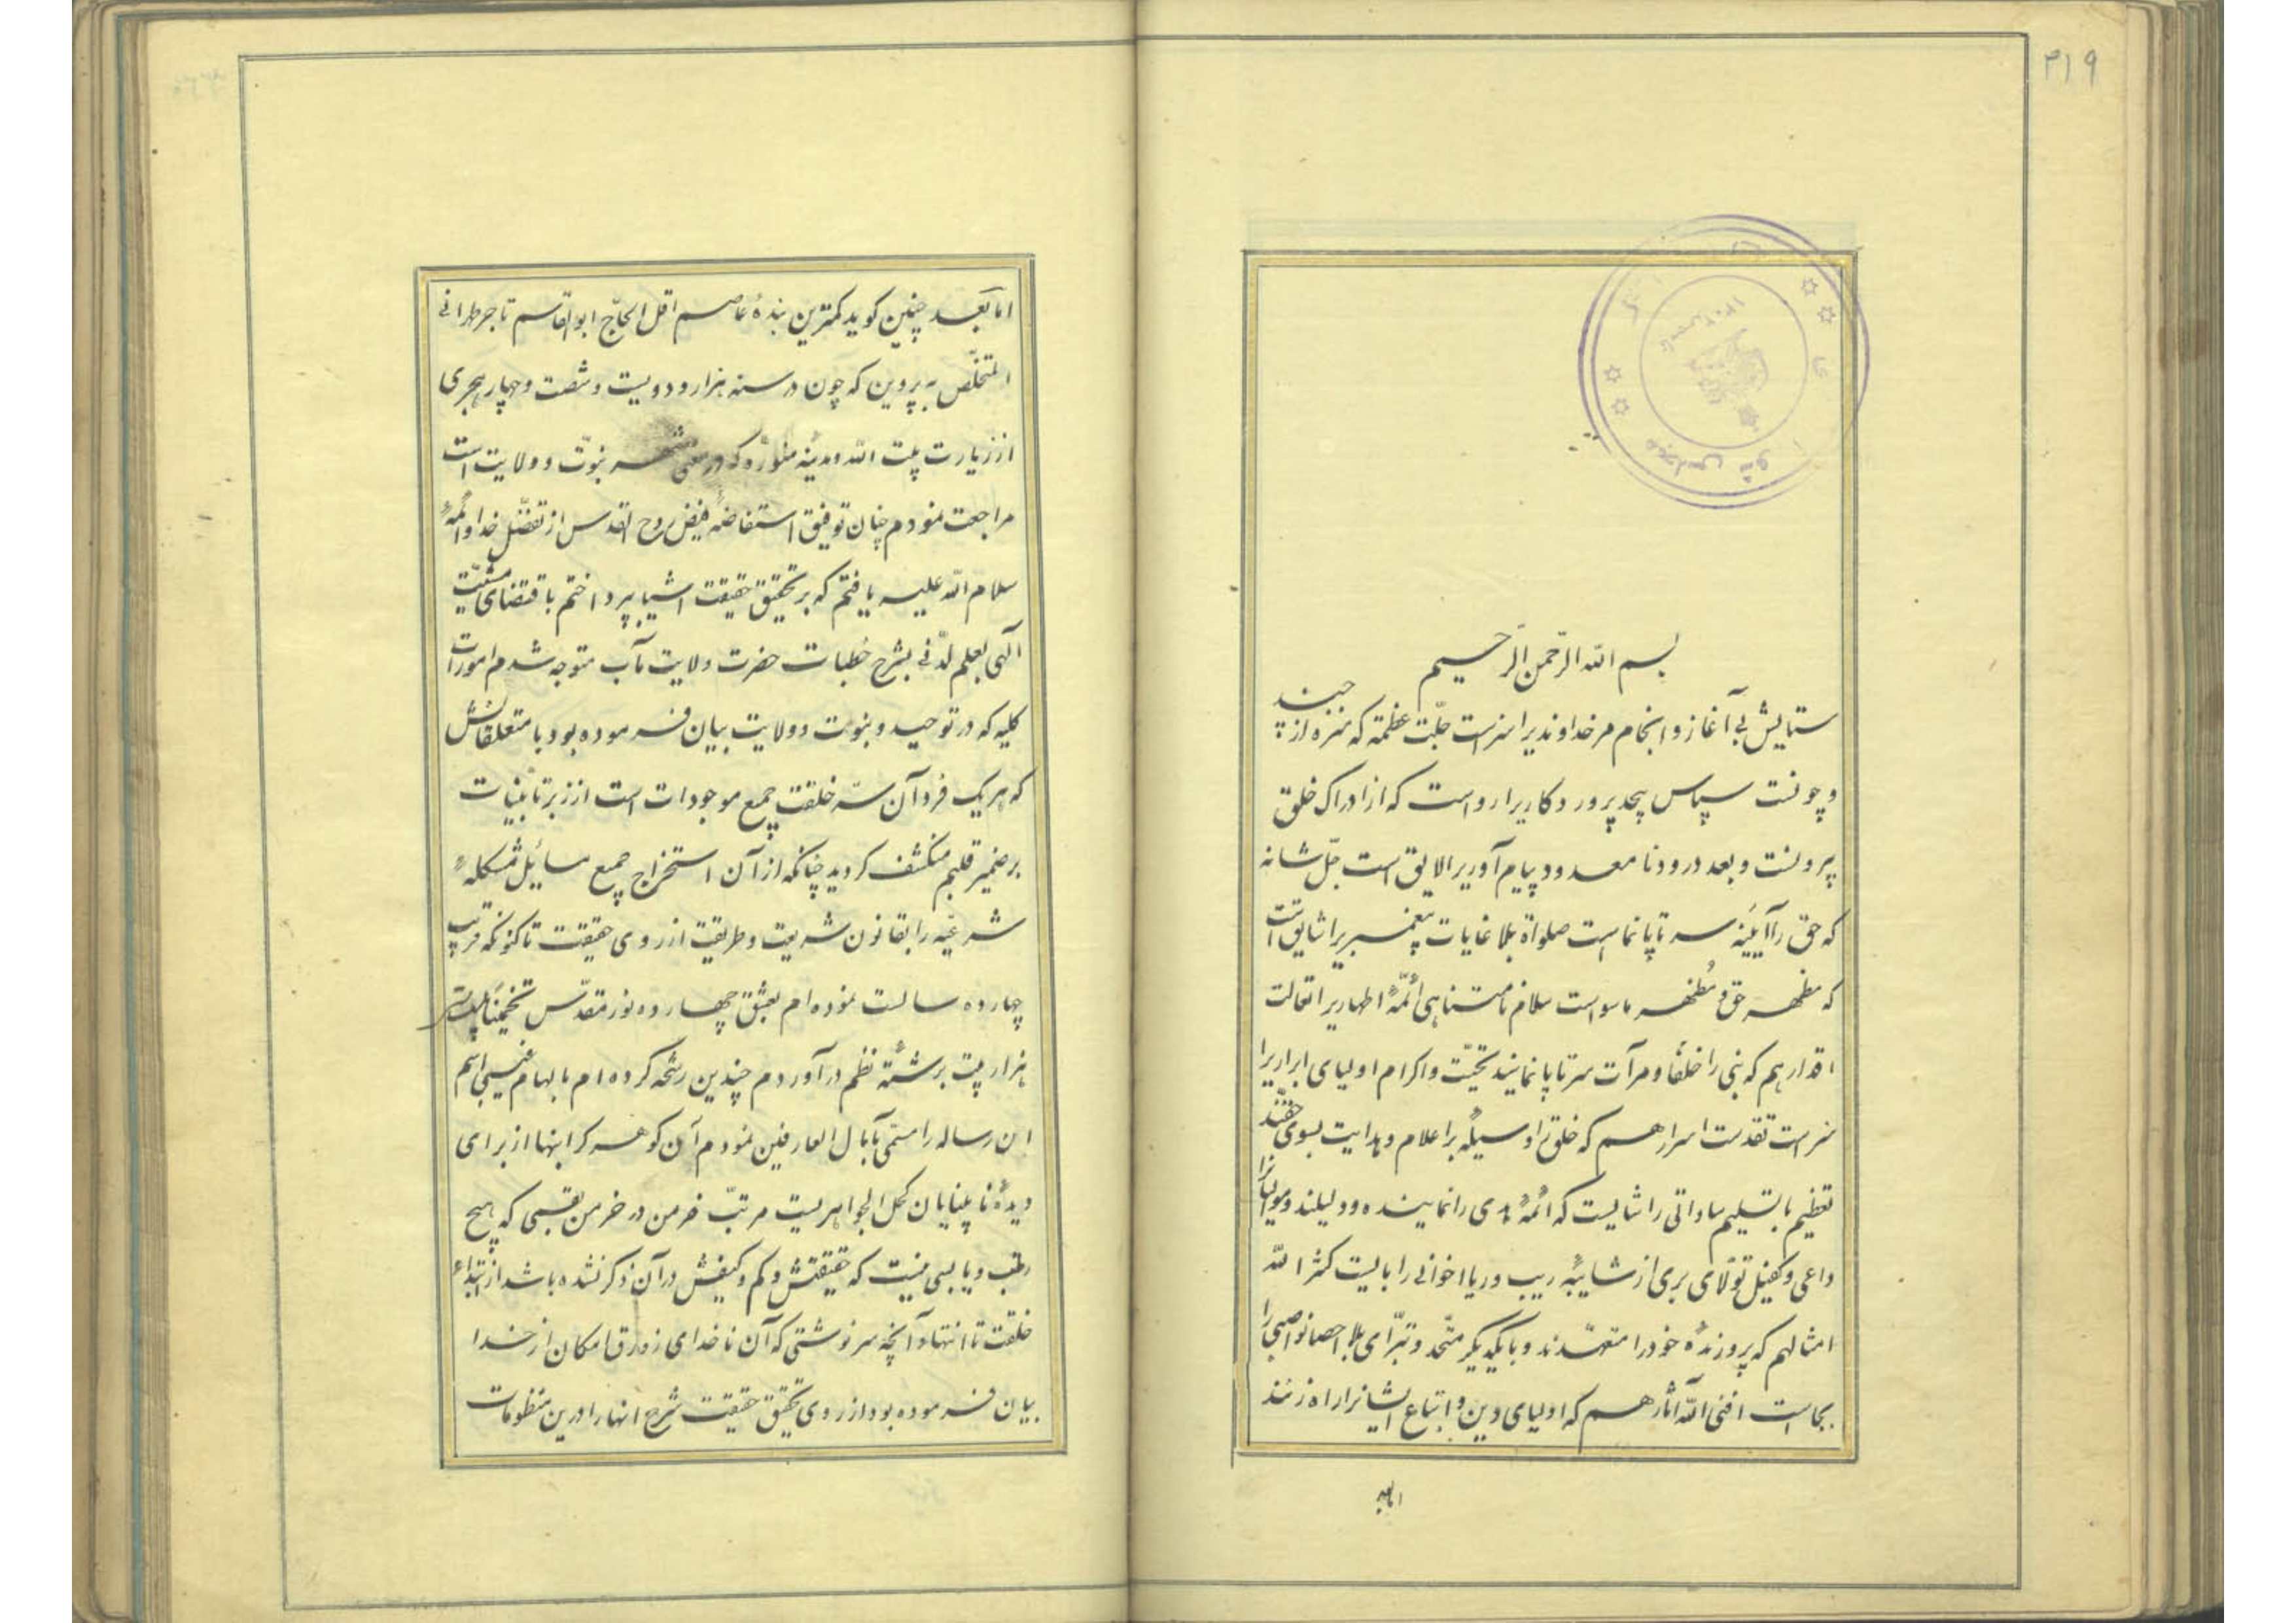 ۳۱۹
بسم الله الرحمن الرحیم
ستایش بی آغاز و انجام مر خداوندیرا سزاست جلّت عظمته که منزه از چند
و چونست سپاس بیحد پروردکاریرا رواست که از ادراک خلق
بیرونست و بعد درود نامعدود پیام آوریرا لایق است جلّ شانه
که حق را آیینه سر تا پا نماست صلواة بلا غایات پیغمبریرا شایق است
که مظهر حق و مُظهر ماسواست سلام نامتناهی ائمّهٔ اطهاریرا
اقدارهم که نبی را خلفا و مرآت سر تا پا نمایند تحیّت و اکرام اولیای ابراریرا
سزاست تقدست اسرارهم که خلق را وسیلهٔ براعلام و هدایت بسوی حقّند
تعظیم با تسلیم ساداتی را شایست که ائمّهٔ هدی را نماینده و دلیلند و موالیانرا
داعی و کفیل تولّای بری از شایبهٔ ریب و ریا اخوانی را بایست کثر الله
امثالهم که پروزندهٔ خود را متعهّدند و با یکدیگر متّحد و تبرّای بلا احصا نواصبی را
بجاست افنی الله آثارهم که اولیای دین و اتباع ایشانرا راه زنند
امابعد
امّا بعد چنین کوید کمترین بندهٔ عاصم اقل الحاجّ ابوالقاسم تاجر طهرانی
المتخلّص به پروین که چون در سنه هزار و دویست و شصت و چهار هجری
از زیارت بیت الله و مدینهٔ منوّره که در معنی شهر نبوّت و ولایت است
مراجعت نمودم چنان توفیق استفاضهٔ فیض روح القدس از تفضّل خدا و ائمّهٔ
سلام الله علیه یافتم که بر تحقیق حقیقت اشیا بپرداختم باقتضای مشیّت
الهی بعلم لدّنی بشرح خطبات حضرت ولایت مآب متوجه شدم امورات
کلیه که در توحید و نبوت و ولایت بیان فرموده بود با متعلقاتش
که هر یک فرد آن سرّ خلقت جمیع موجودات است از زبر تا بیّنات
بر ضمیر قلبم منکشف کردید چنانکه از آن استخراج جمیع مسائل مشکلهٔ
شرعیّه را بقانون شریعت و طریقت از روی حقیقت تا کنونکه قریب
چهارده سالست نموده ام بعشق چهارده نور مقدّس تخمیناً بیست
هزار بیت برشتهٔ نظم در آوردم چندین رشحه کرده ام بالهام غیبی اسم
این رساله را مسمّی بآمال العارفین نمودم آن کوهر کرانبها از برای
دیدهٔ نابینایان کحل الجواهریست مرتبّ خرمن در خرمن بقسمی که هیچ
رطب و یابسی نیست که حقیقتش و کم و کیفش در آن ذکر نشده باشد از ابتداء
خلقت تا انتها و آنچه سرنوشتی که آن ناخدای زورق امکان از خدا
بیان فرموده بود از روی تحقیق حقیقت شرح آنها را در این منظومات